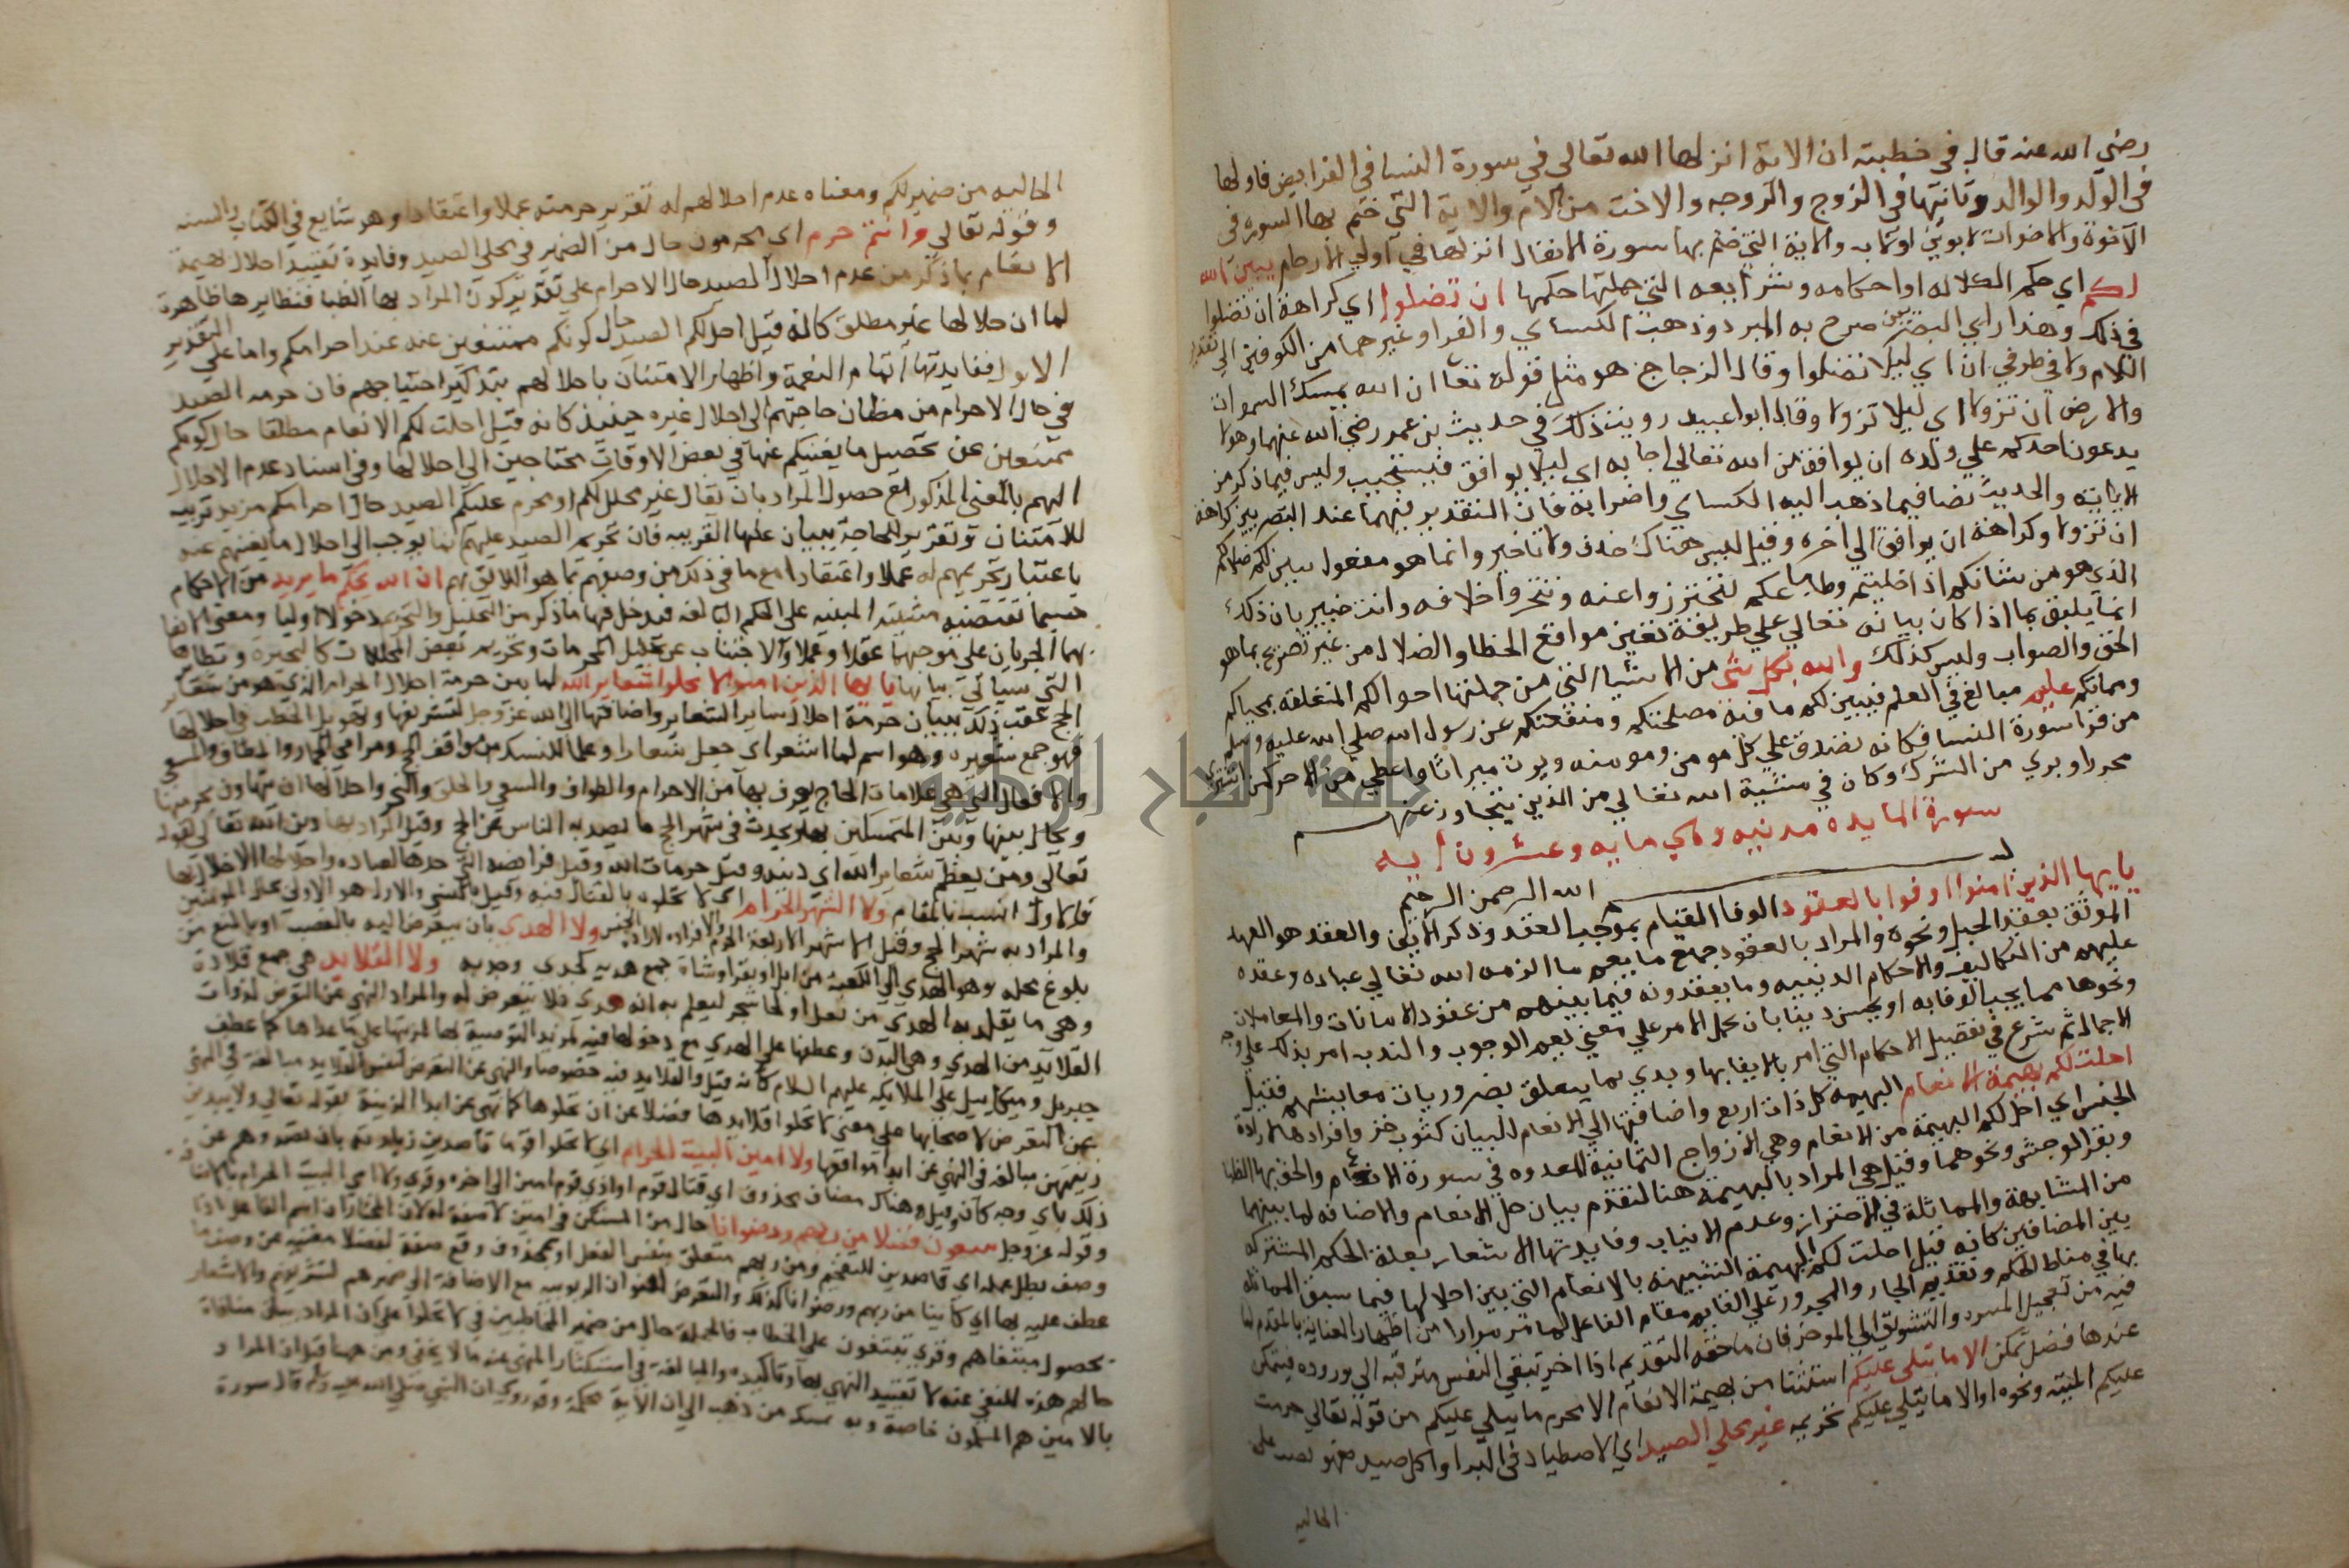 رضي الله عنه قال في خطبته ان الاية انزلها الله تعالى في سورة النسا في الفرايض فاولها
في الولد والوالد وثانيتها في الزوج والزوجه والاخت من الام والاية التي ختم بها السورة في
الاخوة والاخوات لابوين اولاب والاية التي ختم بها سورة الانفال انزلها في اولي الارحام يبين الله
لكم اي حكم الكلاله او احكامه وشرايعه التي جملتها حكمها ان تضلوا اي كراهة ان تضلوا
في ذلك وهذا راي البصريين صرح به المبرد وذهب الكسائي والفرا وغيرهما من الكوفيين الي تقدير
اللام ولا في طرفي ان اي ليلا تضلوا وقال الزجاج هو مثل قوله تعا ان الله يمسك السموات
والارض ان تزولا اي ليلا تزولا وقال ابوا عبيد رويت ذلك في حديث بن عمر رضي الله عنهما وهو لا
يدعون احدكم علي ولده ان يوافق من الله تعالي اجابه اي ليلا يوافق فيستجيب وليس فيما ذكر من
الاية والحديث نصا فيما ذهب اليه الكسائي واضرابه فان التقدير فيهما عند البصريين كراهة
ان تزولا وكراهة ان يوافق الي اخره وقيل ليس هناك حذف ولا تاخير وانما هو مفعول يبين لكم ضلالكم
الذي هو من شانكم اذا خليتم وطباعكم لتحترزوا عنه وتتحروا خلافه وانت خبير بان ذلك
انما يليق بما اذا كان بيانه تعالي علي طريقة تعيين مواقع الخطا والضلال من غير تصريح بما هو
الحق والصواب وليس كذلك والله بكل شي من الاشيا التي من جملتها احوالكم المتعلقة بمحياكم
ومماتكم عليم مبالغ في العلم فيبين لكم ما فيه مصلحتكم ومنفعتكم عن رسول الله صلي الله عليه وسلم
من قرا سورة النسا فكانه تصدق علي كل مومن ومومنه ويرث ميراثا واعطي من الاجر كمن اشترى
محررا وبري من الشرك وكان في مشية الله تعالي من الذين يتجاوز عنهم
سورة المايدة مدنيه وهي مايه وعشرون ايه
بسم الله الرحمن الرحيم
يا يها الذين امنوا اوفوا بالعقود الوفا القيام بموجب العقد وذكر الايفا والعقد هو العهد
الموثق بعقد الحبل ونحوه والمراد بالعقود جميع ما يعم ما الزمه الله تعالي عباده وعقده
عليهم من التكاليف والاحكام الدينيه وما يعقدونه فيما بينهم من عقود الامانات والمعاملات
ونحوها مما يجب الوفا به او يحسن دينا بان يحمل الامر علي معني يعم الوجوب والندب امر بذلك علي وجه
الاجمال ثم شرع في تفصيل الاحكام التي امر بالايفا بها وبدي بما يتعلق بضروريات معايشهم فقيل
احلت لكم بهيمة الانعام البهيمة كل ذات اربع واضافتها الي الانعام للبيان كثوب خز وافرادها لارادة
الجنس اي احل لكم البهيمة من الانعام وهي الازواج الثمانية المعدوده في سورة الانعام والحق بها الظبا
وبقر الوحش ونحوهما وقيل هي المراد بالبهيمة هنا لتقدم بيان حل الانعام والاضافه لما بينهما
من المشابهة والمماثلة في الاجترار وعدم الانياب وفايدتها الاشعار بعلة الحكم المشتركه
بين المضافين كانه قيل احلت لكم البهيمة الشبيهة بالانعام التي بين احلالها فيما سبق المماثله
بها في مناط الحكم وتقديم الجار والمجرور علي القايم مقام الفاعل لما مر مرارا من اظهار العناية بالمقدم لما
فيه من تعجيل المسرة والتشويق الي الموخر فان ما حقه التقديم اذا اخر تبقي النفس مترقبه الي وروده فيتمكن
عندها فضل تمكن الا ما يتلي عليكم استثنا من بهيمة الانعام الا محرم ما يتلي عليكم من قوله تعالي حرمت
عليكم الميتة ونحوه او الا ما يتلي عليكم تحريمه غير محلي الصيد اي الاصطياد في البر او اكل صيده وهو نصب على
الحاليه
الحاليه من ضمير لكم ومعناه عدم احلالهم له تقرير حرمته عملا واعتقادا وهو شايع في الكتاب والسنه
وقوله تعالي وانتم حرم اي محرمون حال من الضمير في محلي الصيد وفايدة تقييد احلال بهيمة
الانعام بما ذكر من عدم احلال الصيد حال الاحرام علي تقدير كون المراد بها الظبا فنظايرها ظاهرة
لما ان حلالها غير مطلق كانه قيل احل لكم الصيد حال كونكم ممتنعين عنه عند احرامكم واما علي التقدير
الاول ففايدتها اتمام النعمة واظهار الامتنان باحلالهم بتذكير احتياجهم فان حرمه الصيد
في حال الاحرام من مظان حاجتهم الي احلال غيره حينيذ كانه قيل احلت لكم الانعام مطلقا حال كونكم
ممتنعين عن تحصيل ما يغنيكم عنها في بعض الاوقات محتاجين الي احلالها وفي اسناد عدم الاحلال
اليهم بالمعني المذكور مع حصول المراد بان يقال غير محلل لكم او محرم عليكم الصيد حال احرامكم مزيد تربيه
للامتنان وتقرير للحاجة ببيان علتها القريبه فان تحريم الصيد عليهم انما يوجب الي احلال ما يغنيهم عنه
باعتبار تحريمهم له عملا واعتقادا مع ما في ذلك من وصفهم بما هو اللايق بهم ان الله يحكم ما يريد من الاحكام
حسبما تقتضيه مشيته المبنيه علي الحكم البالغه فيدخل فيها ما ذكر من التحليل والتحريم دخولا اوليا ومعني الايفا
بهما الجريان علي موجبهما عقدا وعملا والاجتناب عن تحليل المحرمات وتحريم بعض المحللات كالبحيرة ونظايرها
التي سياتي بيانها يا يها الذين امنوا لا تحلوا شعاير الله لما بين حرمة احلال الحرام الذي هو من شعاير
الحج عقب ذلك ببيان حرمة احلال ساير الشعاير واضافتها الي الله عز وجل لتشريفها وتهويل الخطب في احلالها
فهو جمع شعيره وهو اسم لما اشعر اي جعل شعارا وعلما للنسك من مواقف الحج ومرامي الجمار والمطاف والمسعي
والافعال التي هي علامات الحاج يعرف بها من الاحرام والطواف والسعي والحلق والنحر واحلالها ان يتهاون بحرمتها
ويحال بينها وبين المتنسكين بها ويحدث في شهر الحج ما يصد به الناس عن الحج وقيل المراد بها دين الله تعالي لقوله
تعالى ومن يعظم شعاير الله اي دينه وقيل حرمات الله وقيل فرايضه التي حدها لعباده واحلالها الاخلال بها
فالاول انسب بالمقام ولا الشهر الحرام اي لا تحلوه بالقتال فيه وقيل بالنسي والاول هو الاولي بحال المومنين
والمراد به شهر الحج وقيل الاشهر الاربعة الحرم والافراد لارادة الجنس ولا الهدي بان يتعرض اليه بالغصب او بالمنع من
بلوغ محله وهو الهدي الي الكعبه من ابل او بقر او شاة جمع هديه كجدي وجديه ولا القلايد هي جمع قلادة
وهي ما يقلد به الهدي من نعل او لحا شجر ليعلم به انه هدي فلا يتعرض له والمراد النهي عن التعرض لذوات
القلايد من الهدي وهي البدن وعطفها علي الهدي مع دخولها فيه لمزيد التوصية بها لمزيتها علي ما عداها كما عطف
جبريل وميكاييل علي الملايكه عليهم السلام كانه قيل والقلايد فيه خصوصا والنهي عن التعرض لنفس القلايد مبالغة في النهي
عن التعرض لاصحابها علي معني لا تحلوا قلايدها فضلا عن ان تحلوها كما نهي عن ابدا الزينة بقوله تعالي ولا يبدين
زينتهن مبالغه في النهي عن ابدا مواقعها ولا امين البيت الحرام اي لا تحلوا قوما قاصدين زيارته بان تصدوهم عن
ذلك باي وجه كان وقيل هناك مضاف محذوف اي قتال قوم او اذي قوم امين الي اخره وقري ولا امي البيت الحرام بالاضافه
وقوله عز وجل يبتغون فضلا من ربهم ورضوانا حال من المستكن في امين لا صفة له لان المختار ان اسم الفاعل اذا
وصف بطل عمله اي قاصدين للتفخيم ومن ربهم متعلق بنفس الفعل او بمحذوف وقع صفة لفضلا مغنيه عن وصف ما
عطف عليه بها اي كاينا من ربهم ورضوانا كذلك والتعرض لعنوان الربوبيه مع الاضافة الي ضميرهم لتشريفهم والاشعار
بحصول مبتغاهم وقري تبتغون علي الخطاب فالجملة حال من ضمير المخاطبين في لا تحلوا علي ان المراد بيان منافاة
حالهم هذه للنهي عنه لا تقييد النهي بها وتاكيده والمبالغة في استنكار المنهي عنه ما لا يخفي ومن ههنا قيل ان المراد
بالامين هم المسلمون خاصة وبه تمسك من ذهب الي ان الاية محكمة وقد روي ان النبي صلي الله عليه وسلم قال سورة
جامعة النجاح الوطنية